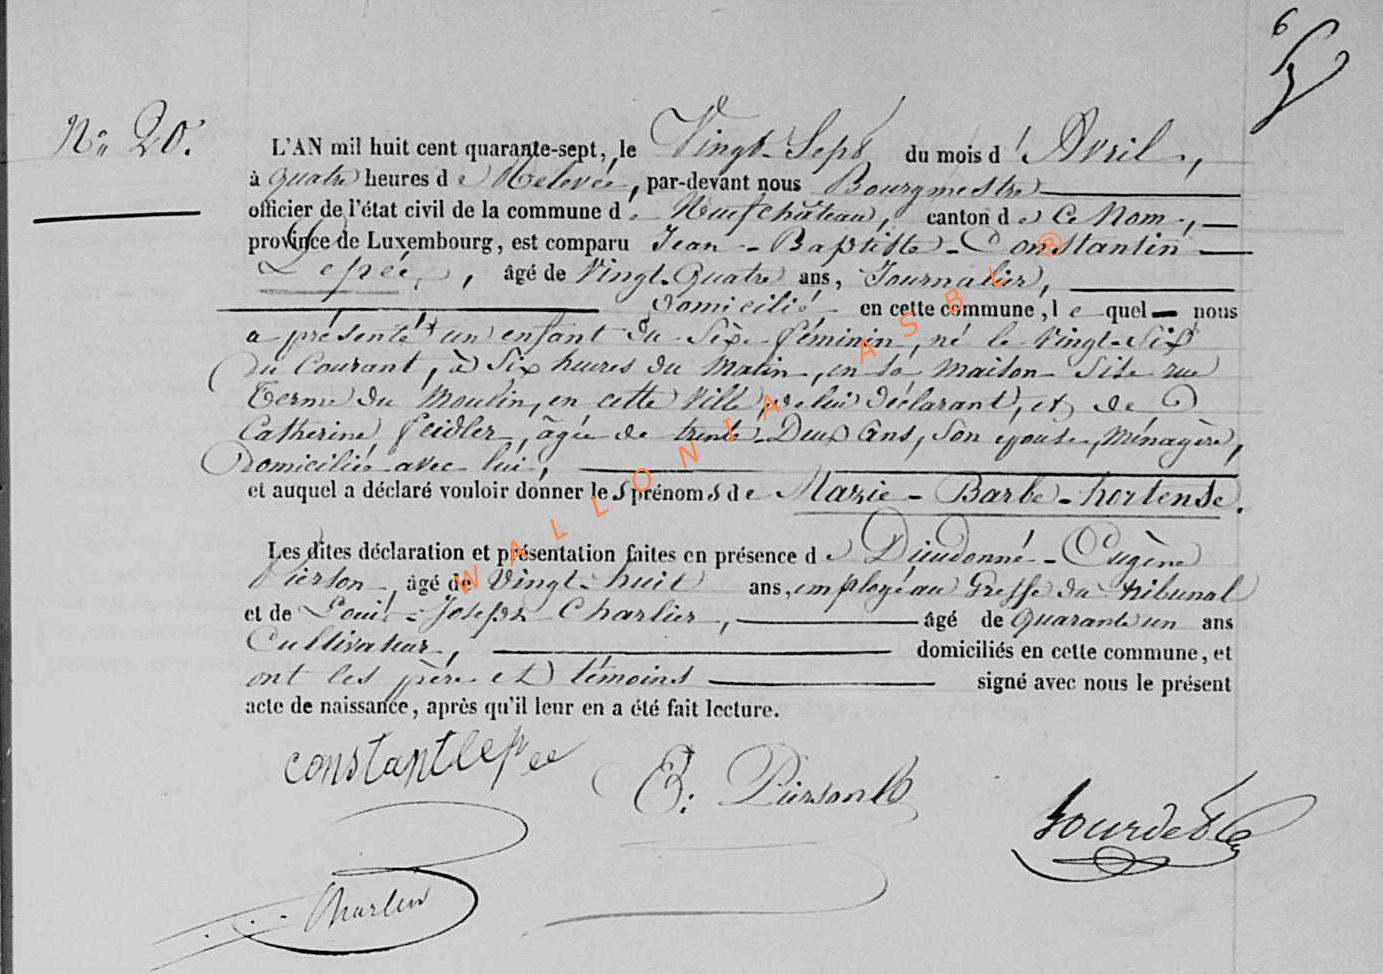 6
N° 20.
L'AN mil huit cent quarante-sept, le Vingt-Sept du mois d'Avril,
à quatre heures de Relevée, par-devant nous Bourgmestre
officier de l'état civil de la commune de Neufchâteau, canton de Ce Nom,
province de Luxembourg, est comparu Jean-Baptiste-Constantin
Lepée, âgé de Vingt-Quatre ans, Journalier,
Domicilié en cette commune, lequel nous
a présenté un enfant du Sexe féminin, né le Vingt-Six
du Courant, à Six heures du Matin, en sa maison Sise rue
Terme du Moulin, en cette Ville, de lui déclarant, et de
Catherine feidler, âgée de trente-Deux Ans, Son épouse, Ménagère,
Domiciliée avec lui,
et auquel a déclaré vouloir donner les prénoms de Marie-Barbe-hortense.
Les dites déclaration et présentation faites en présence de Dieudonné-Eugène
Pierson, âgé de Vingt-huit ans, employé au Greffe du tribunal
et de Louis-Joseph Charlier, âgé de Quarante un ans
Cultivateur, domiciliés en cette commune, et
ont les père et témoins signé avec nous le présent
acte de naissance, après qu'il leur en a été fait lecture.
constant lepée
E. Pierson
Charlier
WALLONIA ASBL ®